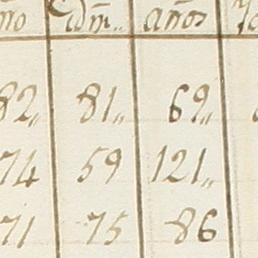 años
82,, 81,, 69,,
74 59 121,,
71 75 86